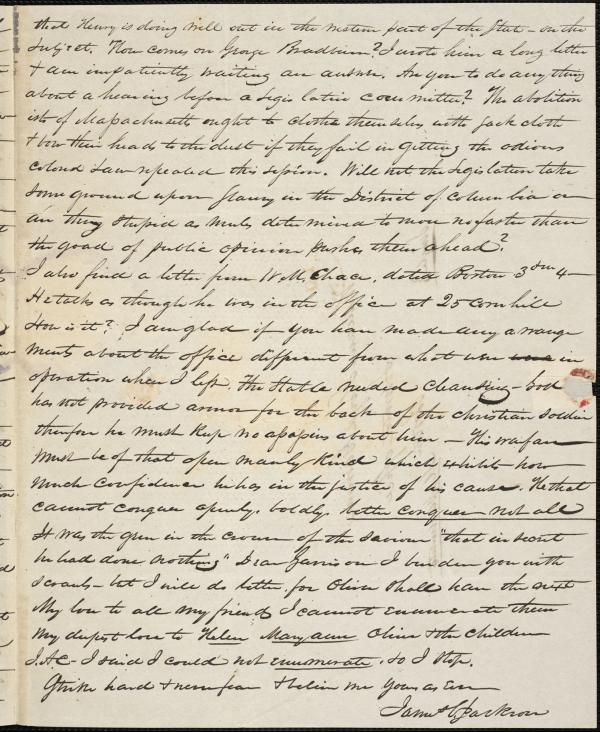 that Henry is doing well out in the western part of the State - on the
subject. How comes on George Bradburn? I wrote him a long letter
& am impatiently waiting an answer. Are you to do any thing
about a hearing before a Legislative committee? The abolition
ists of Massachusetts ought to clothe themselves with sack cloth
& bow their heads to the dust if they fail in getting the odious
colored Law repealed this session. Will not the Legislature take
some ground upon Slavery in the District of Columbia or
are they stupid as mules determined to move no faster than
the goad of public opinion pushes them ahead?
I also find a letter from W. M. Chace, dated Boston 3d 4
He talks as though he was in the office at 25 Cornhill
How is it? I am glad if you have made any arrange
ments about the office different from what were in
operation when I left. The Stable needed cleansing - God
has not provided armor for the back of the christian soldier
therefore he must keep no about him - His warfare
must be of that open manly kind which exhibits how
much confidence he has in the justice of his cause. He that
cannot conquer openly, boldly, better conquer not at all
It was the gem in the crown of the Saviour "that in secret
he had done nothing" Dear Garrison I burden you with
scrawls - but I will do better, for Oliver shall have the next
My love to all my friends I cannot enumerate them
My deepest love to Helen Mary ann Oliver & the children
J.A.C - I said I could not enumerate. so I stop.
Strike hard & never fear & believe me yours as Ever
James C Jackson